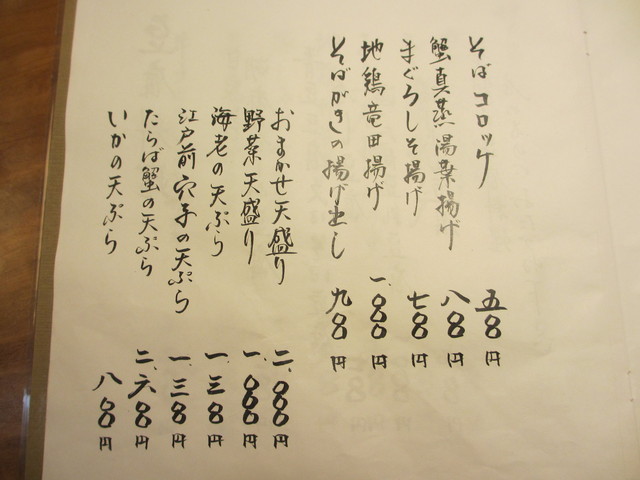 そばコロッケ 五〇〇円
蟹真蒸湯葉揚げ 八〇〇円
まぐろしそ揚げ 七〇〇円
地鶏竜田揚げ 一、〇〇〇円
そばがきの揚げ出し 九〇〇円
おまかせ天盛り 二、〇〇〇円
野菜天盛り 一、〇〇〇円
海老の天ぷら 一、三〇〇円
江戸前穴子の天ぷら 一、三〇〇円
たらば蟹の天ぷら 二、六〇〇円
いかの天ぷら 八〇〇円